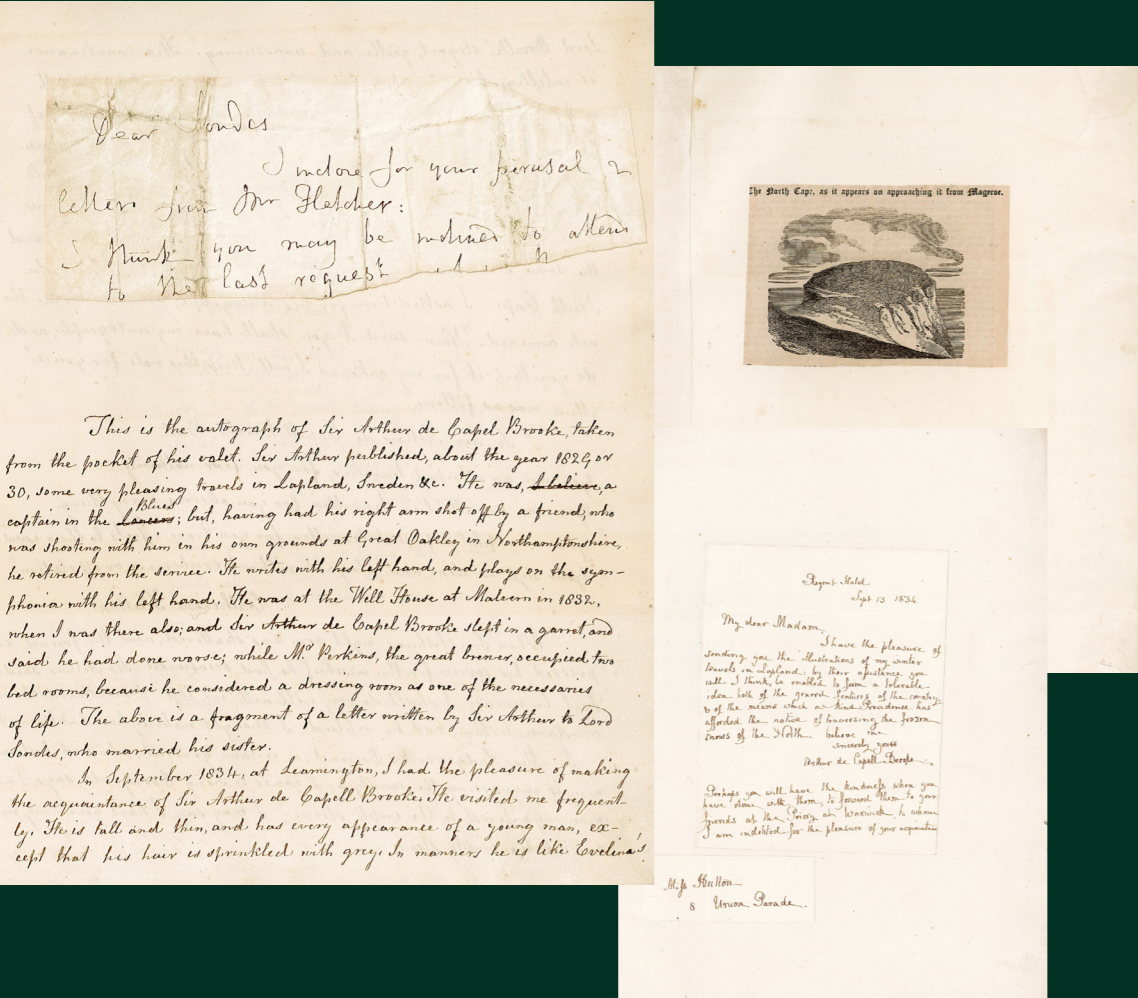 Dear Sondes
I inclose for your perusal 2
letters from Mr Fletcher:
I think you may be inclined to attend
to the last request
This is the autograph of Sir Arthur de Capel Brooke, taken
from the pocket of his valet. Sir Arthur published, about the year 1829 or
30, some very pleasing travels in Lapland, Sweden &c. He was, I believe, a
captain in the Lancers Blues; but, having had his right arm shot off by a friend, who
was shooting with him in his own grounds at Great Oakley in Northamptonshire,
he retired from the service. He writes with his left hand, and plays on the sym-
phonia with his left hand. He was at the Well House at Malvern in 1832,
when I was there also; and Sir Arthur de Capel Brooke slept in a garret, and
said he had done worse; while Mr Perkins, the great brewer, occupied two
bed rooms, because he considered a dressing room as one of the necessaries
of life. The above is a fragment of a letter written by Sir Arthur to Lord
Sondes, who married his sister.
In September 1834, at Leamington, I had the pleasure of making
the acquaintance of Sir Arthur de Capell Brooke. He visited me frequent-
ly. He is tall and thin, and has every appearance of a young man, ex-
cept that his hair is sprinkled with grey. In manners he is like Evelina's
The North Cape, as it appears on approaching it from Mageroe.
Regent Hotel
Sept 13 1834
My dear Madam,
I have the pleasure of
sending you the illustrations of my winter
travels in Lapland: by their assistance you
will I think, be enabled to form a tolerable
idea both of the general features of the country
& of the means which a kind Providence has
afforded the native of traversing the frozen
snows of the North. believe me
sincerely yours
Arthur de Capell Brooke.
Perhaps you will have the kindness when you
have done with them, to forward them to your
friends at the Priory at Warwick, to whom
I am indebted for the pleasure of your acquaintance
Miss Hutton
8 Union Parade.